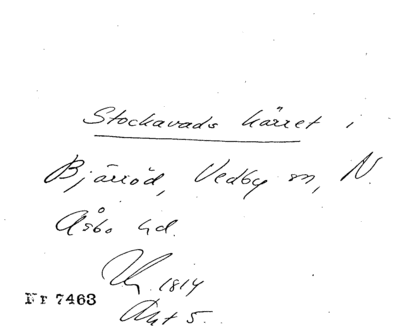 Stockavads kärret i
Bjärröd, Vedby sn, N.
Åsbo hd.
1814
Akt 5.
Nr 7463